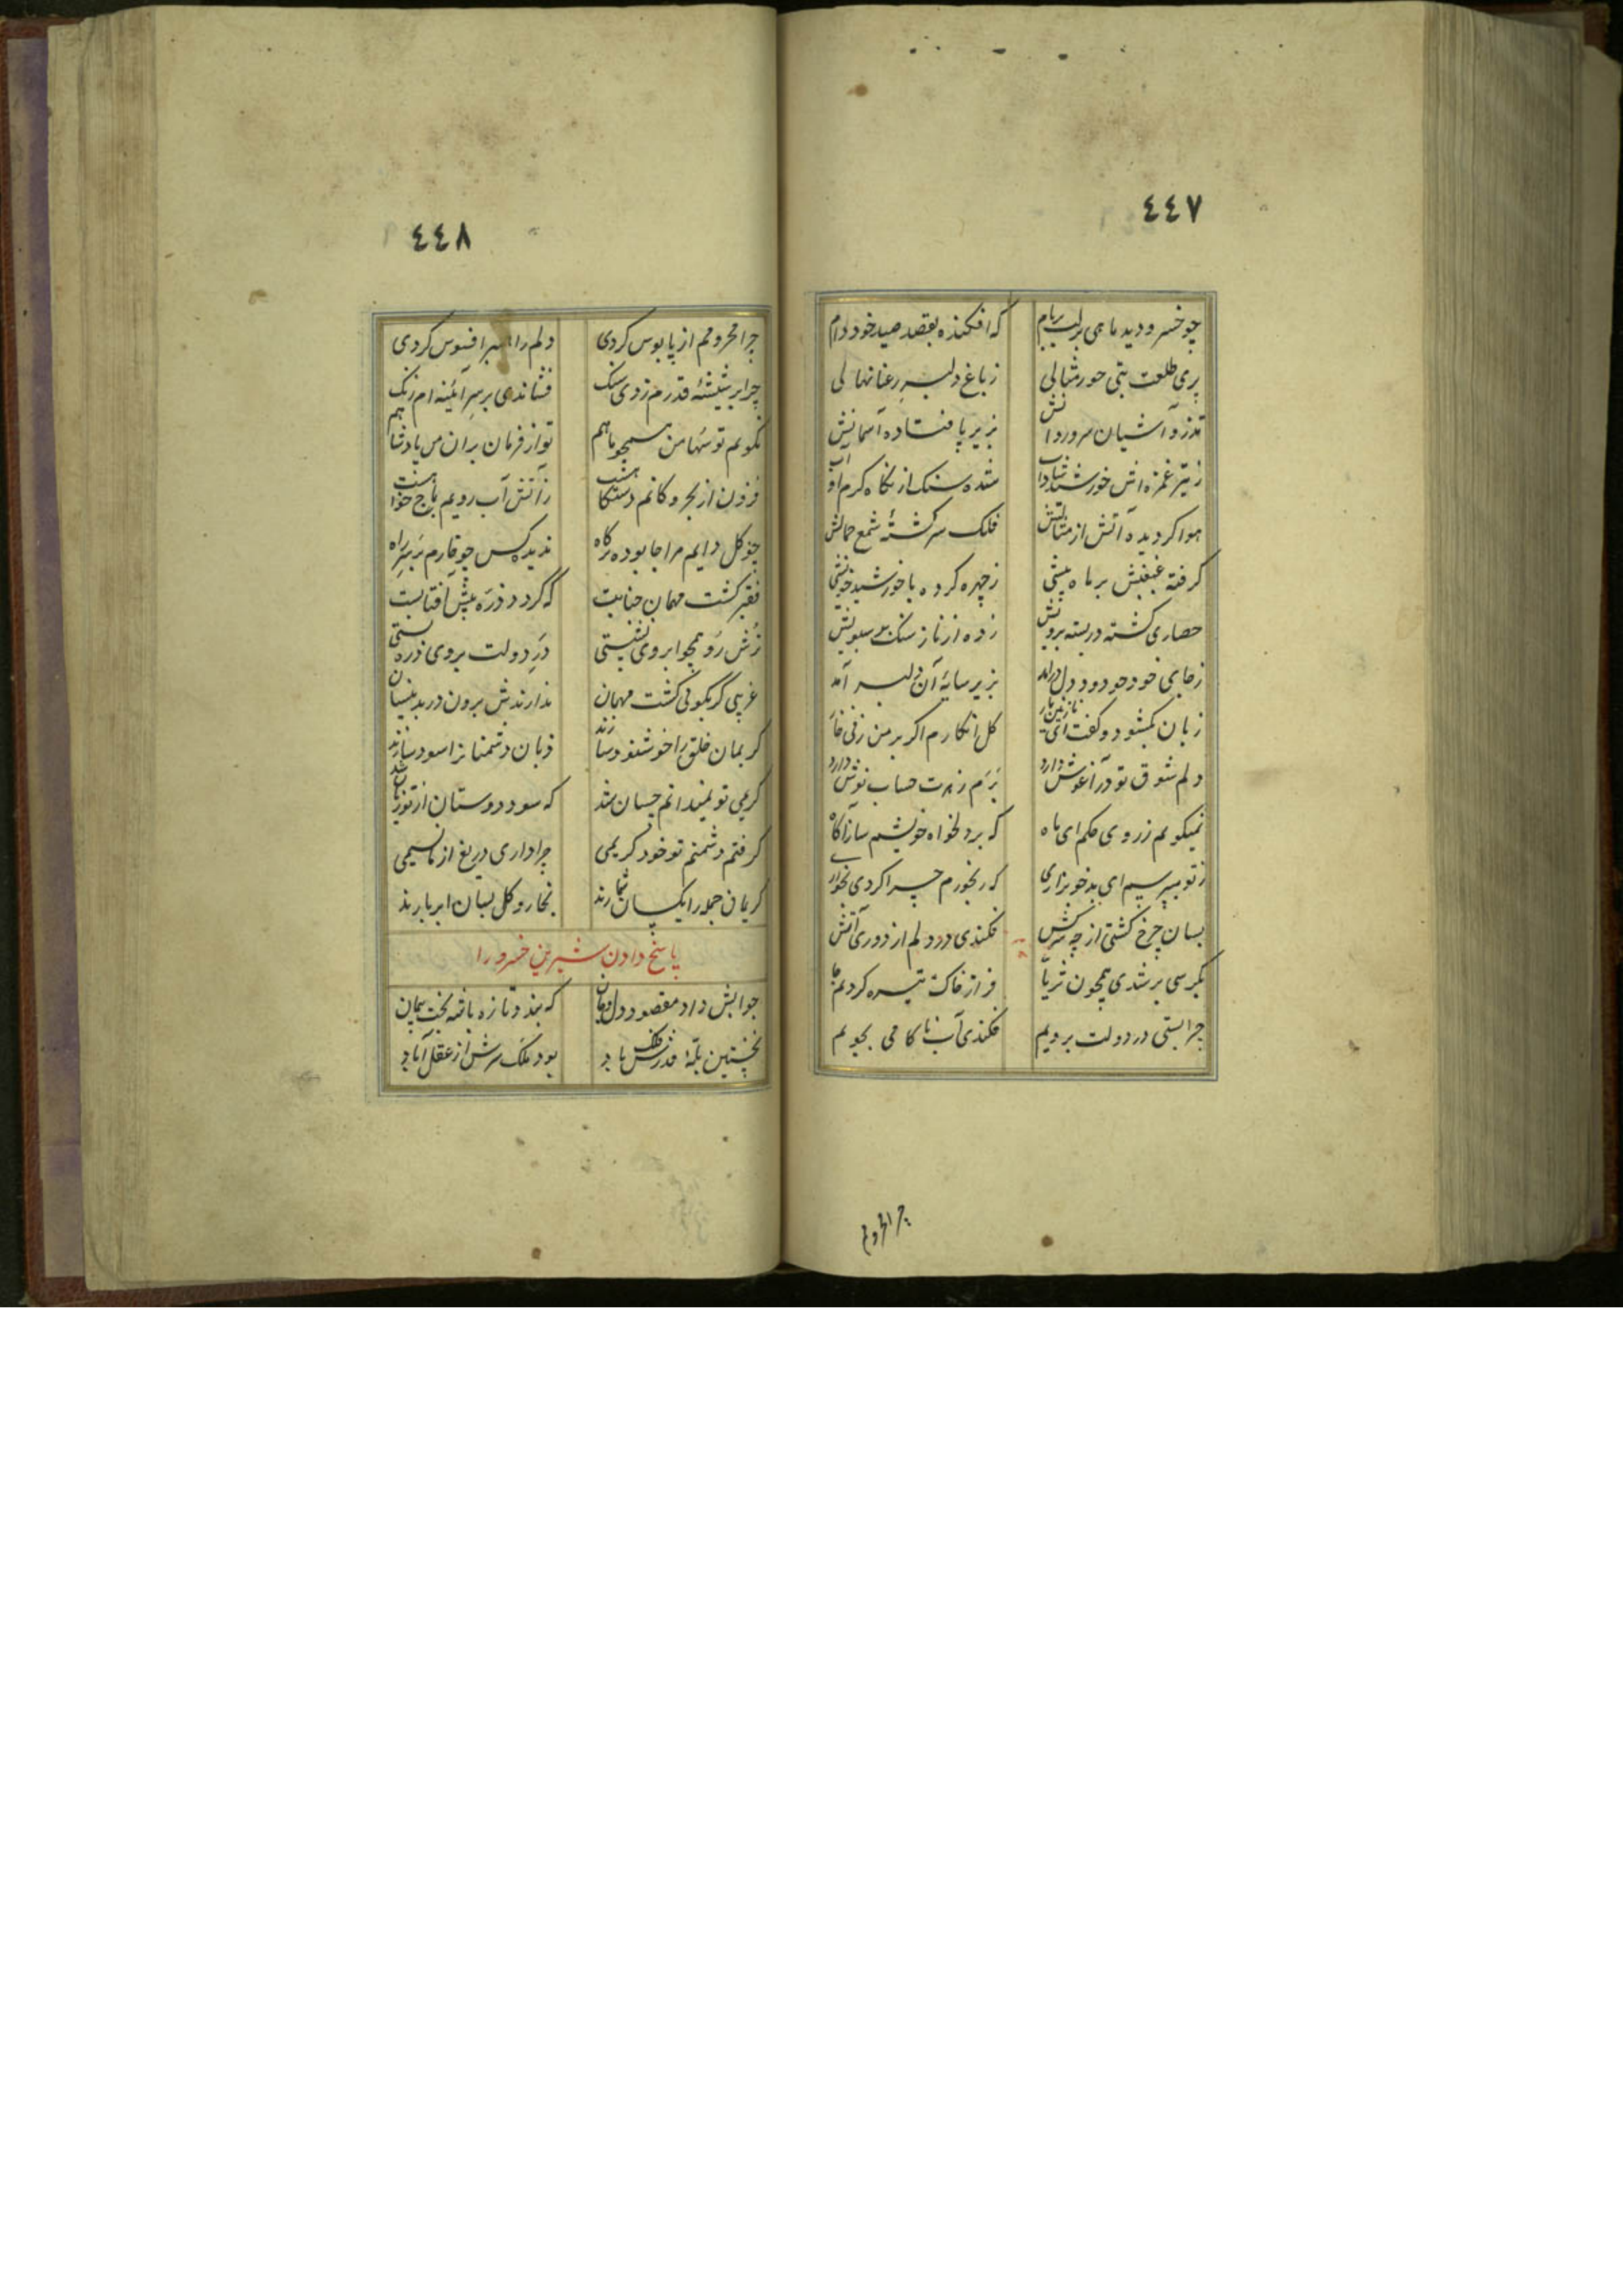 ٤٤٧
چو خسرو دید ماهی بر لب بام که افکنده بقصد صید خود دام
پری طلعت بتی حور مثالی ز باغ دلبری رعنا نهالی
تذرو آشیان سرو روانش بزیر پا فتاده آسمانش
ز تیر غمزه اش خورشید شده سنک از نکاه کرم او آب
هوا کردیده آتش از فلک سرکشته شمع جمالش
کرفته غبغبش بر ماه پیشی ز چهره کرده با خورشید خویشی
حصاری کشته در بسته برویش زده از ناز سنک بر سبویش
ز جای خود چو دود دل درآمد بزیر سایه آن دلبر آمد
زبان بکشود و کفت ای نازنین یار کل انکارم اکر بر من زنی خار
دلم شوق تو در آغوش دارد برم زهرت حساب نوش دارد
نمیکویم ز روی حکم ای ماه که بر دلخواه خویشم ساز آکاه
ز تو میپرسم ای بدخو بزاری که رنجورم چرا کردی بخواری
بسان چرخ کشتی از چه سرکش فکندی در دلم از دوری آتش
بکرسی بر شدی همچون ثریا فراز خاک تیره کردیم جا
چرا بستی در دولت برویم فکندی آب ناکامی بجویم
چرا محروم
٤٤٨
چرا محرومم از پابوس کردی دلم را افسوس کردی
چرا بر شیشه قدرم زدی سنک فشاندی بر سر آئینه ام زنک
نکویم تو شها من همچو ماهم تو از فرمان بران من پادشاهم
فزون از بحر و کانم دستکاه هست ز آتش آب رویم باج خواه هست
چو کل دایم مرا جا بوده درکاه ندیده کس چو خارم بر سر راه
فقیر کشت مهمان جنابت که کردد ذره پیش آفتابت
ترش رو همچو ابروی نشستی در دولت بروی ذره بستی
غریبی کر بکوئی کشت مهمان ندارندش برون در بدینسان
کریمان خلق را خوشنود سازند زیان دشمنانرا سود سازند
کریمی تو نمیدانم چسان شد که سود دوستان از تو زیان شد
کرفتم دشمنم تو خود کریمی چرا داری دریغ از ما نسیمی
کریمان جمله را یکسان شمارند بخار و کل بسان ابر بارند
پاسخ دادن شیرین خسرو را
جوابش داد مقصود دل و جان که بند و تازه باشه بخت پیمان
نخستین پله قدرش فلک باد بود ملک سرش از عقل آباد